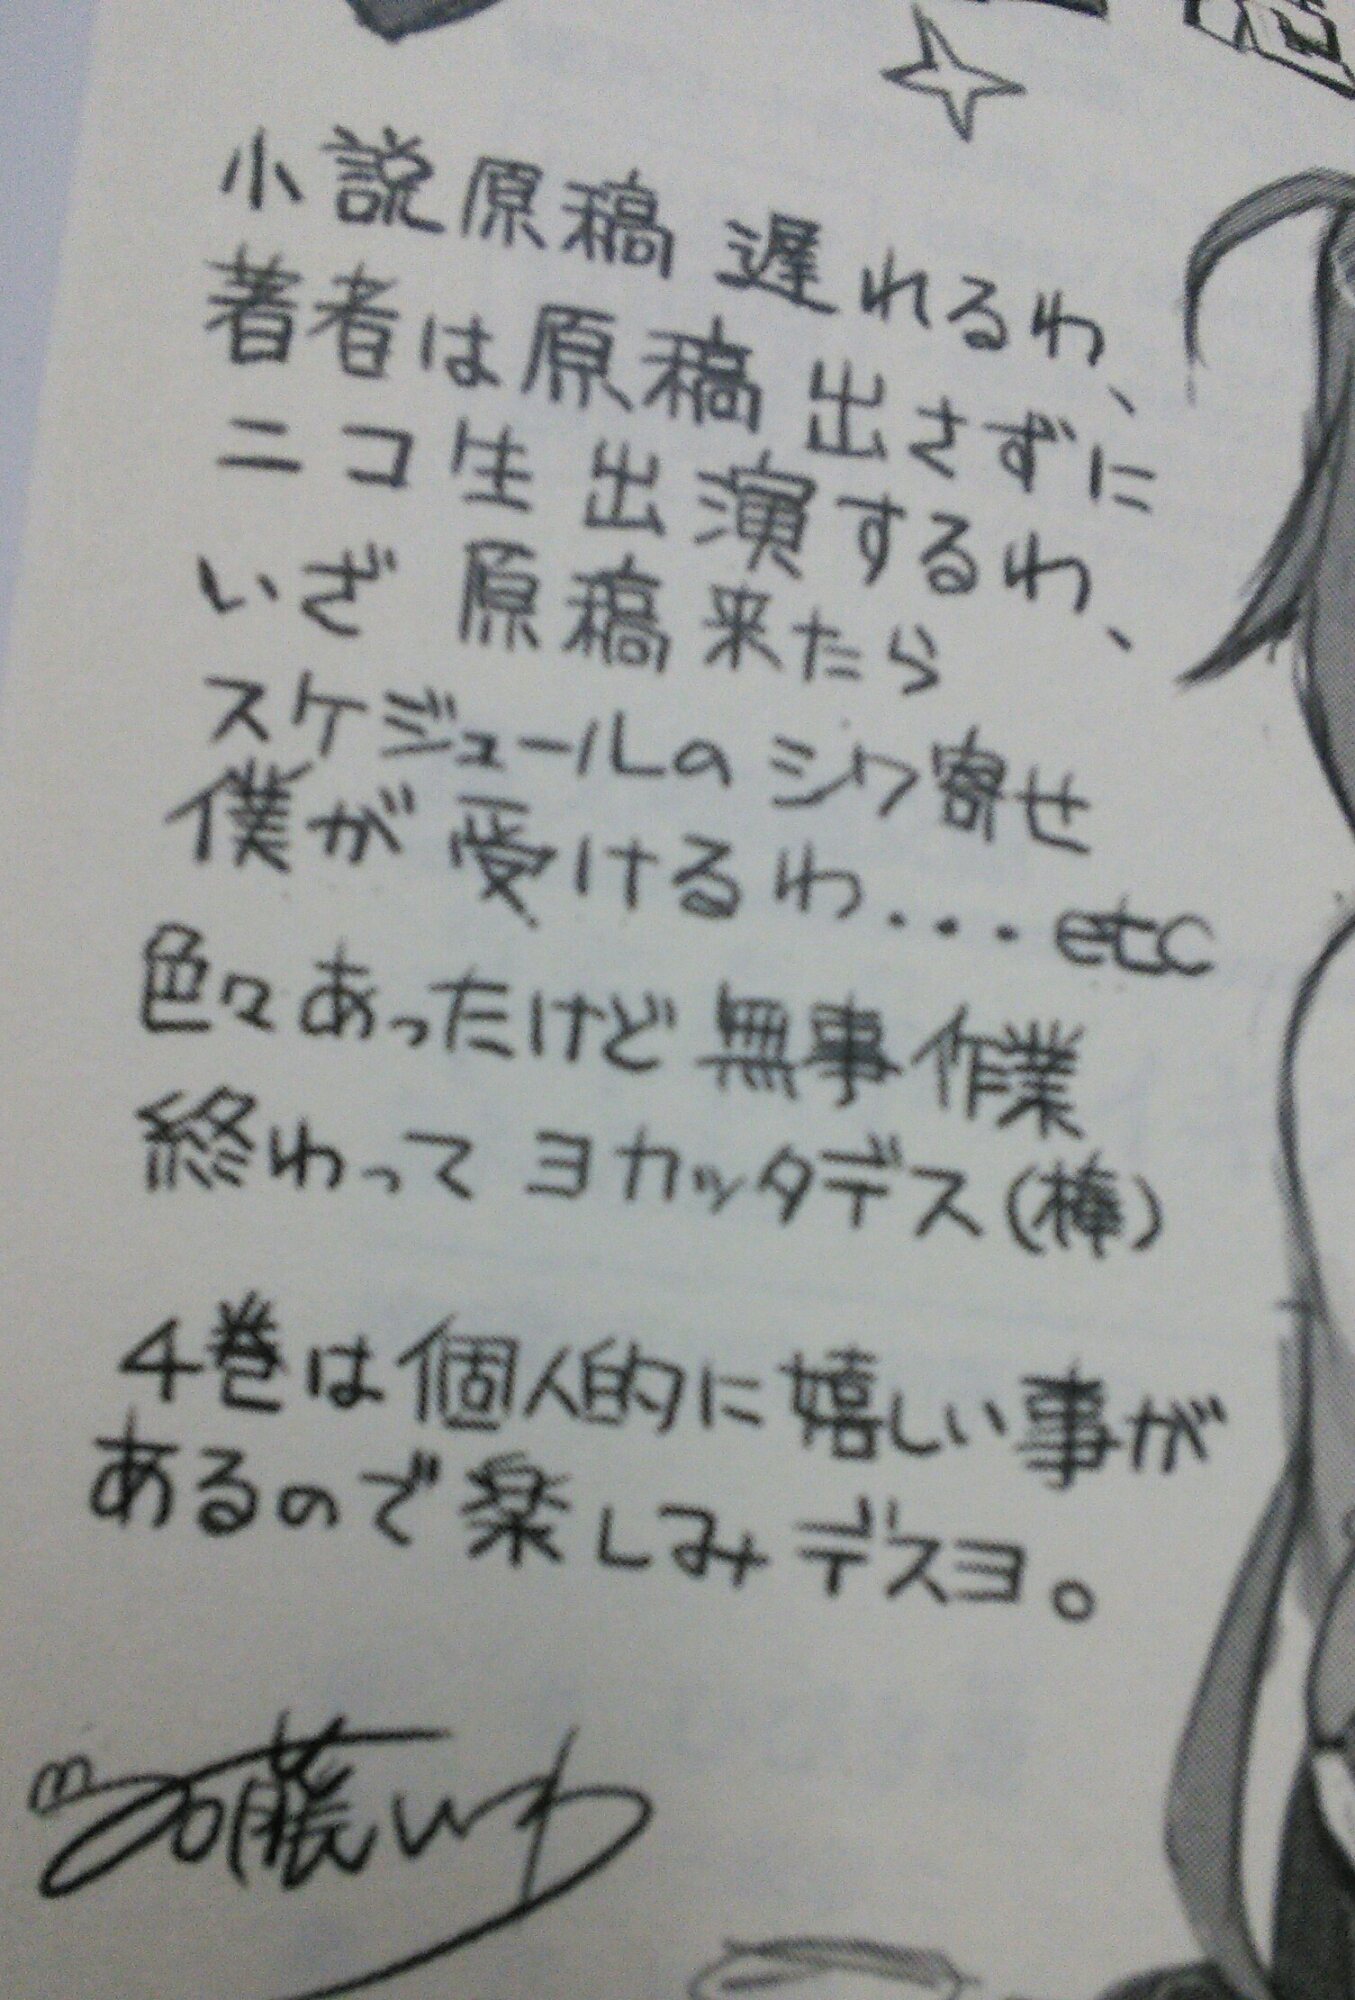 小説原稿遅れるわ、
著者は原稿出さずに
ニコ生出演するわ、
いざ原稿来たら
スケジュールのシワ寄せ
僕が受けるわ...etc
色々あったけど無事作業
終わってヨカッタデス(棒)
4巻は個人的に嬉しい事が
あるので楽しみデスヨ。
加藤いつわ